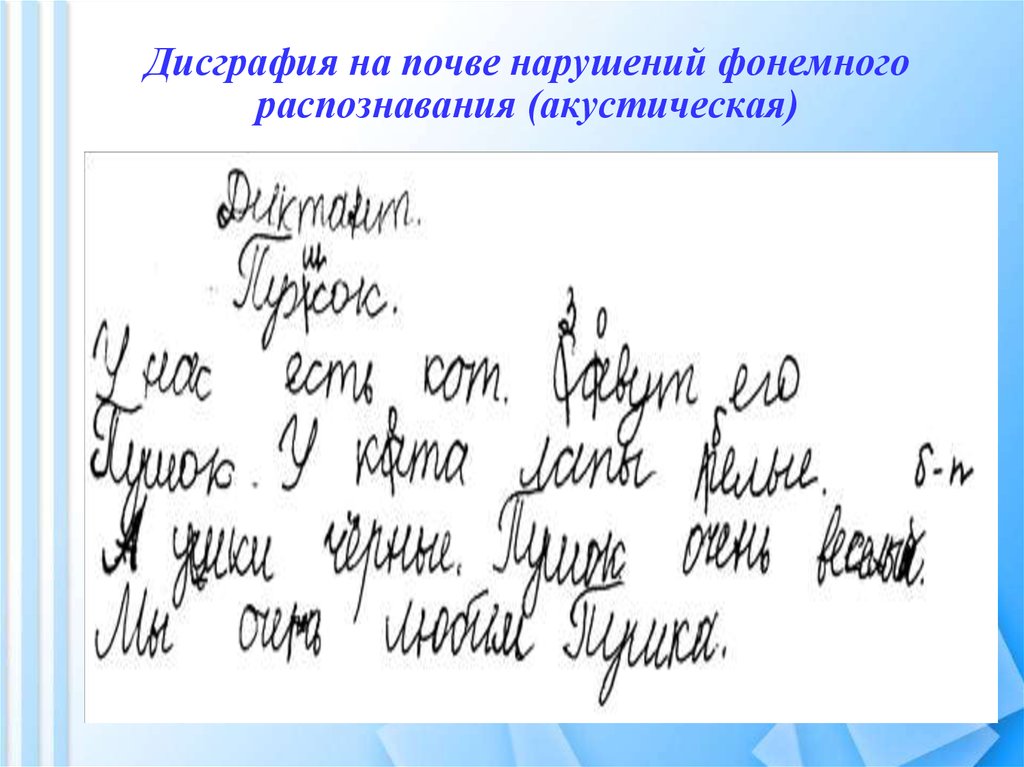 Дисграфия на почве нарушений фонемного
распознавания (акустическая)
Диктант.
ш
Пужок.
З о
У нас есть кот. Савут его
о б
Пушок. У ката лапы пелые. б-п
А ушки чёрные. Пушок очень веселый.
Мы очень любим Пушка.